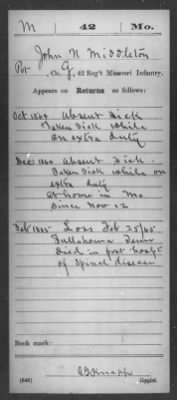 M 42 Mo.
John N Middleton
Pvt, Co. G, 42 Reg't Missouri Infantry.
Appears on Returns as follows:
Oct 1864 Absent Sick
Taken Sick while
on extra duty
Dec 1864 Absent Sick.
Taken Sick while on
extra duty
at home in Mo
Since Nov 12
Feb 1865 Loss Feb 25/65
Tullahoma Tenn
Died in post hosp'l
of Spinal disease
Book mark:
(546)
Copyist.